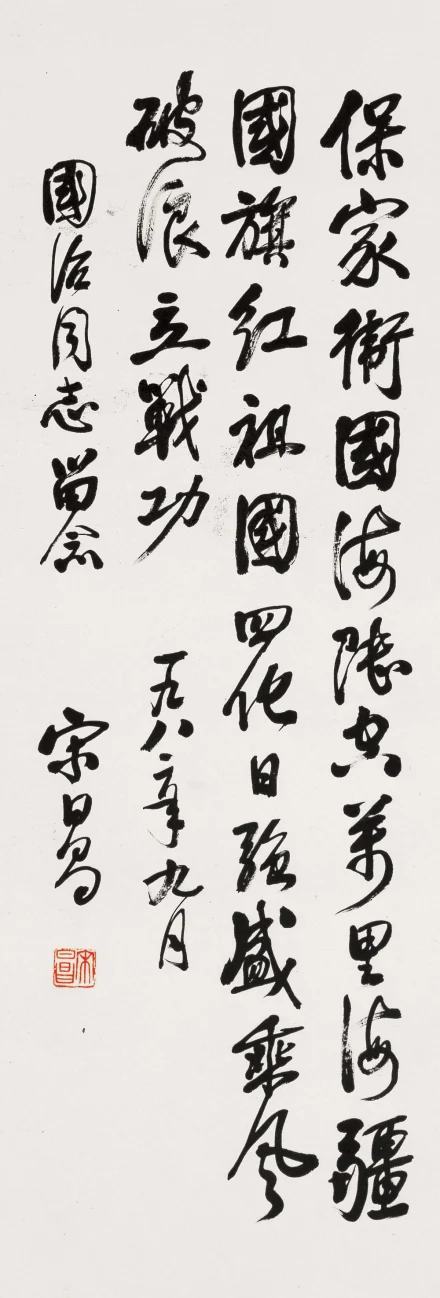 保家衛國海陸空萬里海疆
國旗紅祖國四化日強盛乘風
破浪立戰功
一九八二年九月
國治同志留念
宋日昌
宋日昌